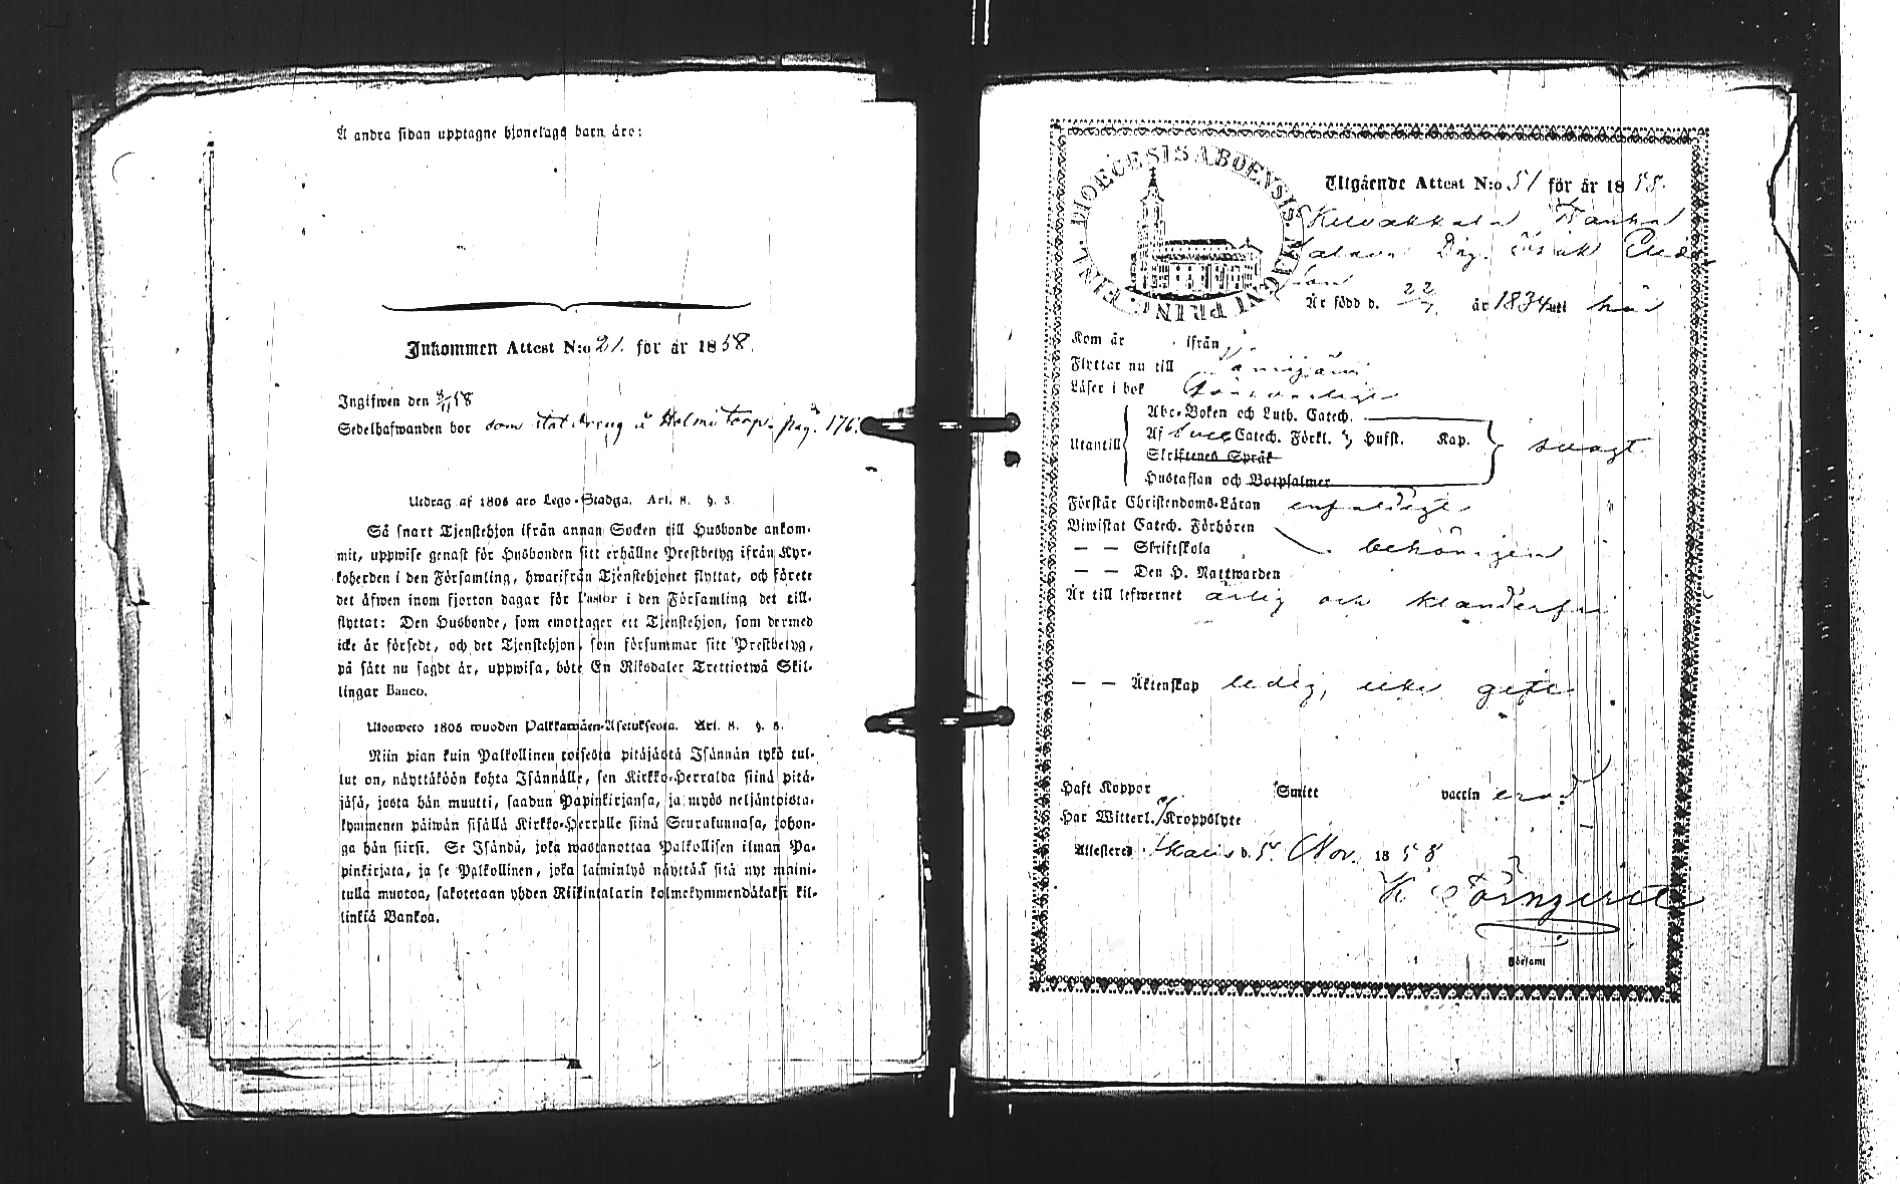 Å andra sidan upptagne hjonelags barn äro:
Inkommen Attest N:o 21. för år 1858.
Ingifwen den 8/11 58
Sedelhafwanden bor som statdreng å Holmis Torp. pag. 176.
Utdrag af 1805 års Lego-Stadga. Art. 8. §. 3.
Så snart Tjenstehjon ifrån annan Socken till Husbonde ankom-
mit, uppwise genast för Husbonden sitt erhållne Prestbetyg ifrån Kyr-
koherden i den Församling, hwarifrån Tjenstehjonet flyttat, och förete
det äfwen inom fjorton dagar för Pastor i den Församling det till-
flyttat: Den Husbonde, som emottager ett Tjenstehjon, som dermed
icke är försedt, och det Tjenstehjon, som försummar sitt Prestbetyg,
på sätt nu sagdt är, uppwisa, böte En Riksdaler Trettiotwå Skil-
lingar Banco.
Ulosweto 1805 wuoden Palkkawäen-Asetuksesta. Art. 8. §. 3.
Niin pian kuin Palkollinen toisesta pitäjästä Isännän tykö tul-
lut on, näyttäköön kohta Isännälle, sen Kirkko-Herralda siinä pitä-
jäsä, josta hän muutti, saadun Papinkirjansa, ja myös neljäntoista-
kymmenen päiwän sisällä Kirkko-Herralle siinä Seurakunnasa, johon-
ga hän siirsi. Se Isändä, joka wastanottaa Palkollisen ilman Pa-
pinkirjata, ja se Palkollinen, joka laiminlyö näyttää sitä nyt maini-
tulla muotoa, sakotetaan yhden Riikintalarin kolmekymmendäkaksi kil-
linkiä Bankoa.
DIOECESIS ABOENSIS. MAGNI PRINC. FINL.
Utgående Attest N:o 51 för år 1858.
Drg. Isak
son
Är född d. 22/7. år 1834 uti här
Kom år ifrån
Flyttar nu till
Läser i bok
Utantill
Abc-Boken och Luth. Catech.
Af Svec Catech. Förkl. Husft. Kap.
Skriftenes Språk
Hustaflan och Botpsalmer
svagt
Förstår Christendoms-Läran enfaldigt
Biwistat Catech. Förhören
— — Skriftskola behörigen
— — Den H. Nattwarden
Är till lefwernet ärlig och klanderfri
— — Äktenskap ledig, icke gift
Haft Koppor Smitt vaccin
Har Witterl. Kroppslyte
Attesterad Karis d. 5. Nov. 1858
K Törnqvist
Församl